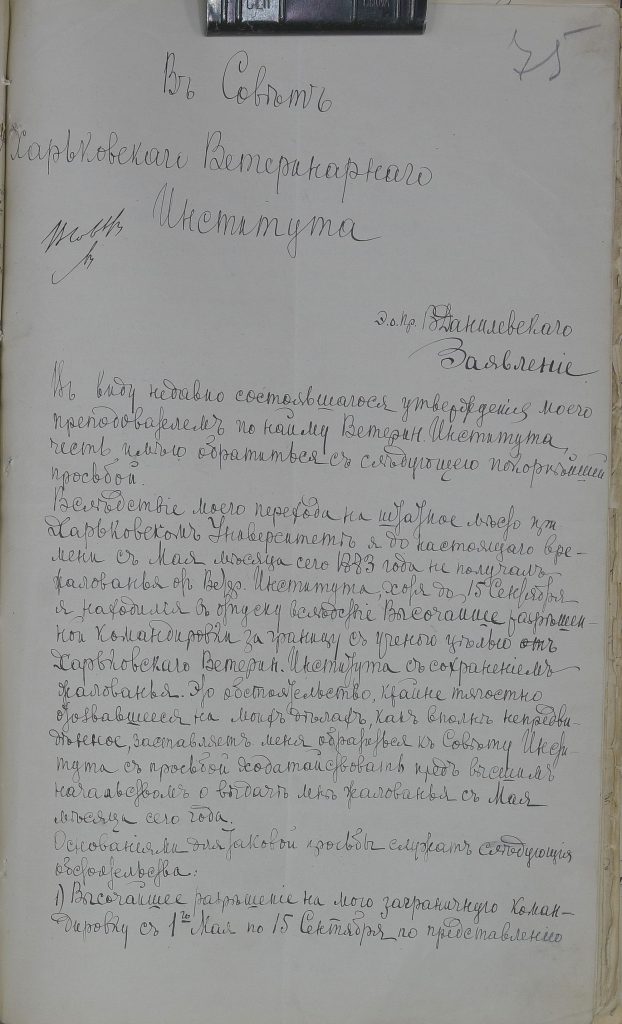 75
Въ Совѣтъ
Харьковскаго Ветеринарнаго
Института
Э.о.пр. В Данилевскаго
Заявленіе
Въ виду недавно состоявшагося утвержденія моего
преподавателемъ по найму Ветерин. Института,
честь имѣю обратиться съ слѣдующею покорнѣйшей
просьбой.
Вслѣдствіе моего перехода на штатное мѣсто при
Харьковскомъ Университетѣ я до настоящаго вре-
мени съ Мая мѣсяца сего 1883 года не получалъ
жалованья отъ Ветер. Института, хотя до 15 Сентября
я находился въ отпуску вслѣдствіе Высочайше разрѣшен-
ной командировки за границу съ ученою цѣлью отъ
Харьковскаго Ветерин. Института съ сохраненіемъ
жалованья. Это обстоятельство, крайне тягостно
отозвавшееся на моихъ дѣлахъ, какъ вполнѣ непредви-
дѣнное, заставляетъ меня обратиться къ Совѣту Инсти-
тута съ просьбой ходатайствовать предъ высшимъ
начальствомъ о выдачѣ мнѣ жалованья съ Мая
мѣсяца сего года.
Основаніями для таковой просьбы служатъ слѣдующія
обстоятельства:
1) Высочайшее разрѣшеніе на мою заграничную коман-
дировку съ 1го Мая по 15 Сентября по представленію